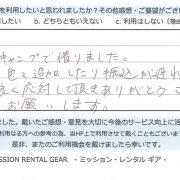 を利用したいと思われましたか？その他感想・ご要望がござい
したい b. どちらともいえない c. 利用はしない（理由
キャンプで借りました。
色々追加したり振込が遅れ
く応対して頂きありがとう
お願いします。
ました。戴いたご感想・意見を大切に今後のサービス向上に活
利用なる方への参考の為、当HP上で利用させて戴くことがございま
是非、またのご利用機会を戴けましたら幸いです。
SSION RENTAL GEAR - ミッション・レンタル ギア -